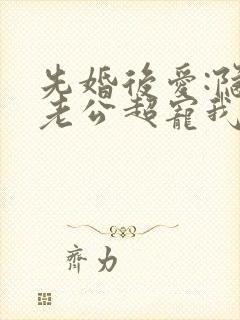 先婚後愛:
老公超寵我
齊力